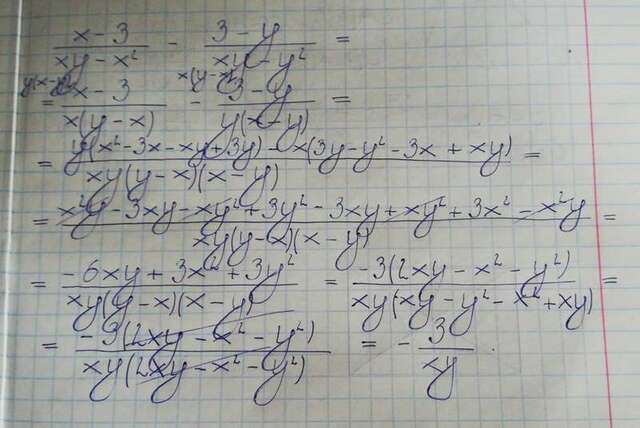 x-3/xy-x² - 3-y/xy-y² =
= y(x-y) x-3/x(y-x) - x(y-x) 3-y/y(x-y) =
= y(x²-3x-xy+3y) - x(3y-y²-3x+xy)/xy(y-x)(x-y) =
= x²y-3xy-xy²+3y²-3xy+xy²+3x²-x²y/xy(y-x)(x-y) =
= -6xy+3x²+3y²/xy(y-x)(x-y) = -3(2xy-x²-y²)/xy(xy-y²-x²+xy) =
= -3(2xy-x²-y²)/xy(2xy-x²-y²) = -3/xy